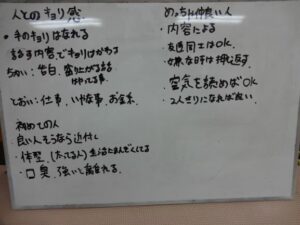 人とのキョリ感
・手のキョリはなれる
話す内容でキョリはかわる
ちかい：告白、盛り上がる話
とおい：仕事、いやな事、お金系
初めての人
・良い人そうなら近付く
・体型(太ってる人)
・口臭 強いと離れる。
めっちゃ仲良い人
・内容による
・友達同士はOK
・嫌な時は押し返す
・空気を読めばOK
・2人きりになれば良い